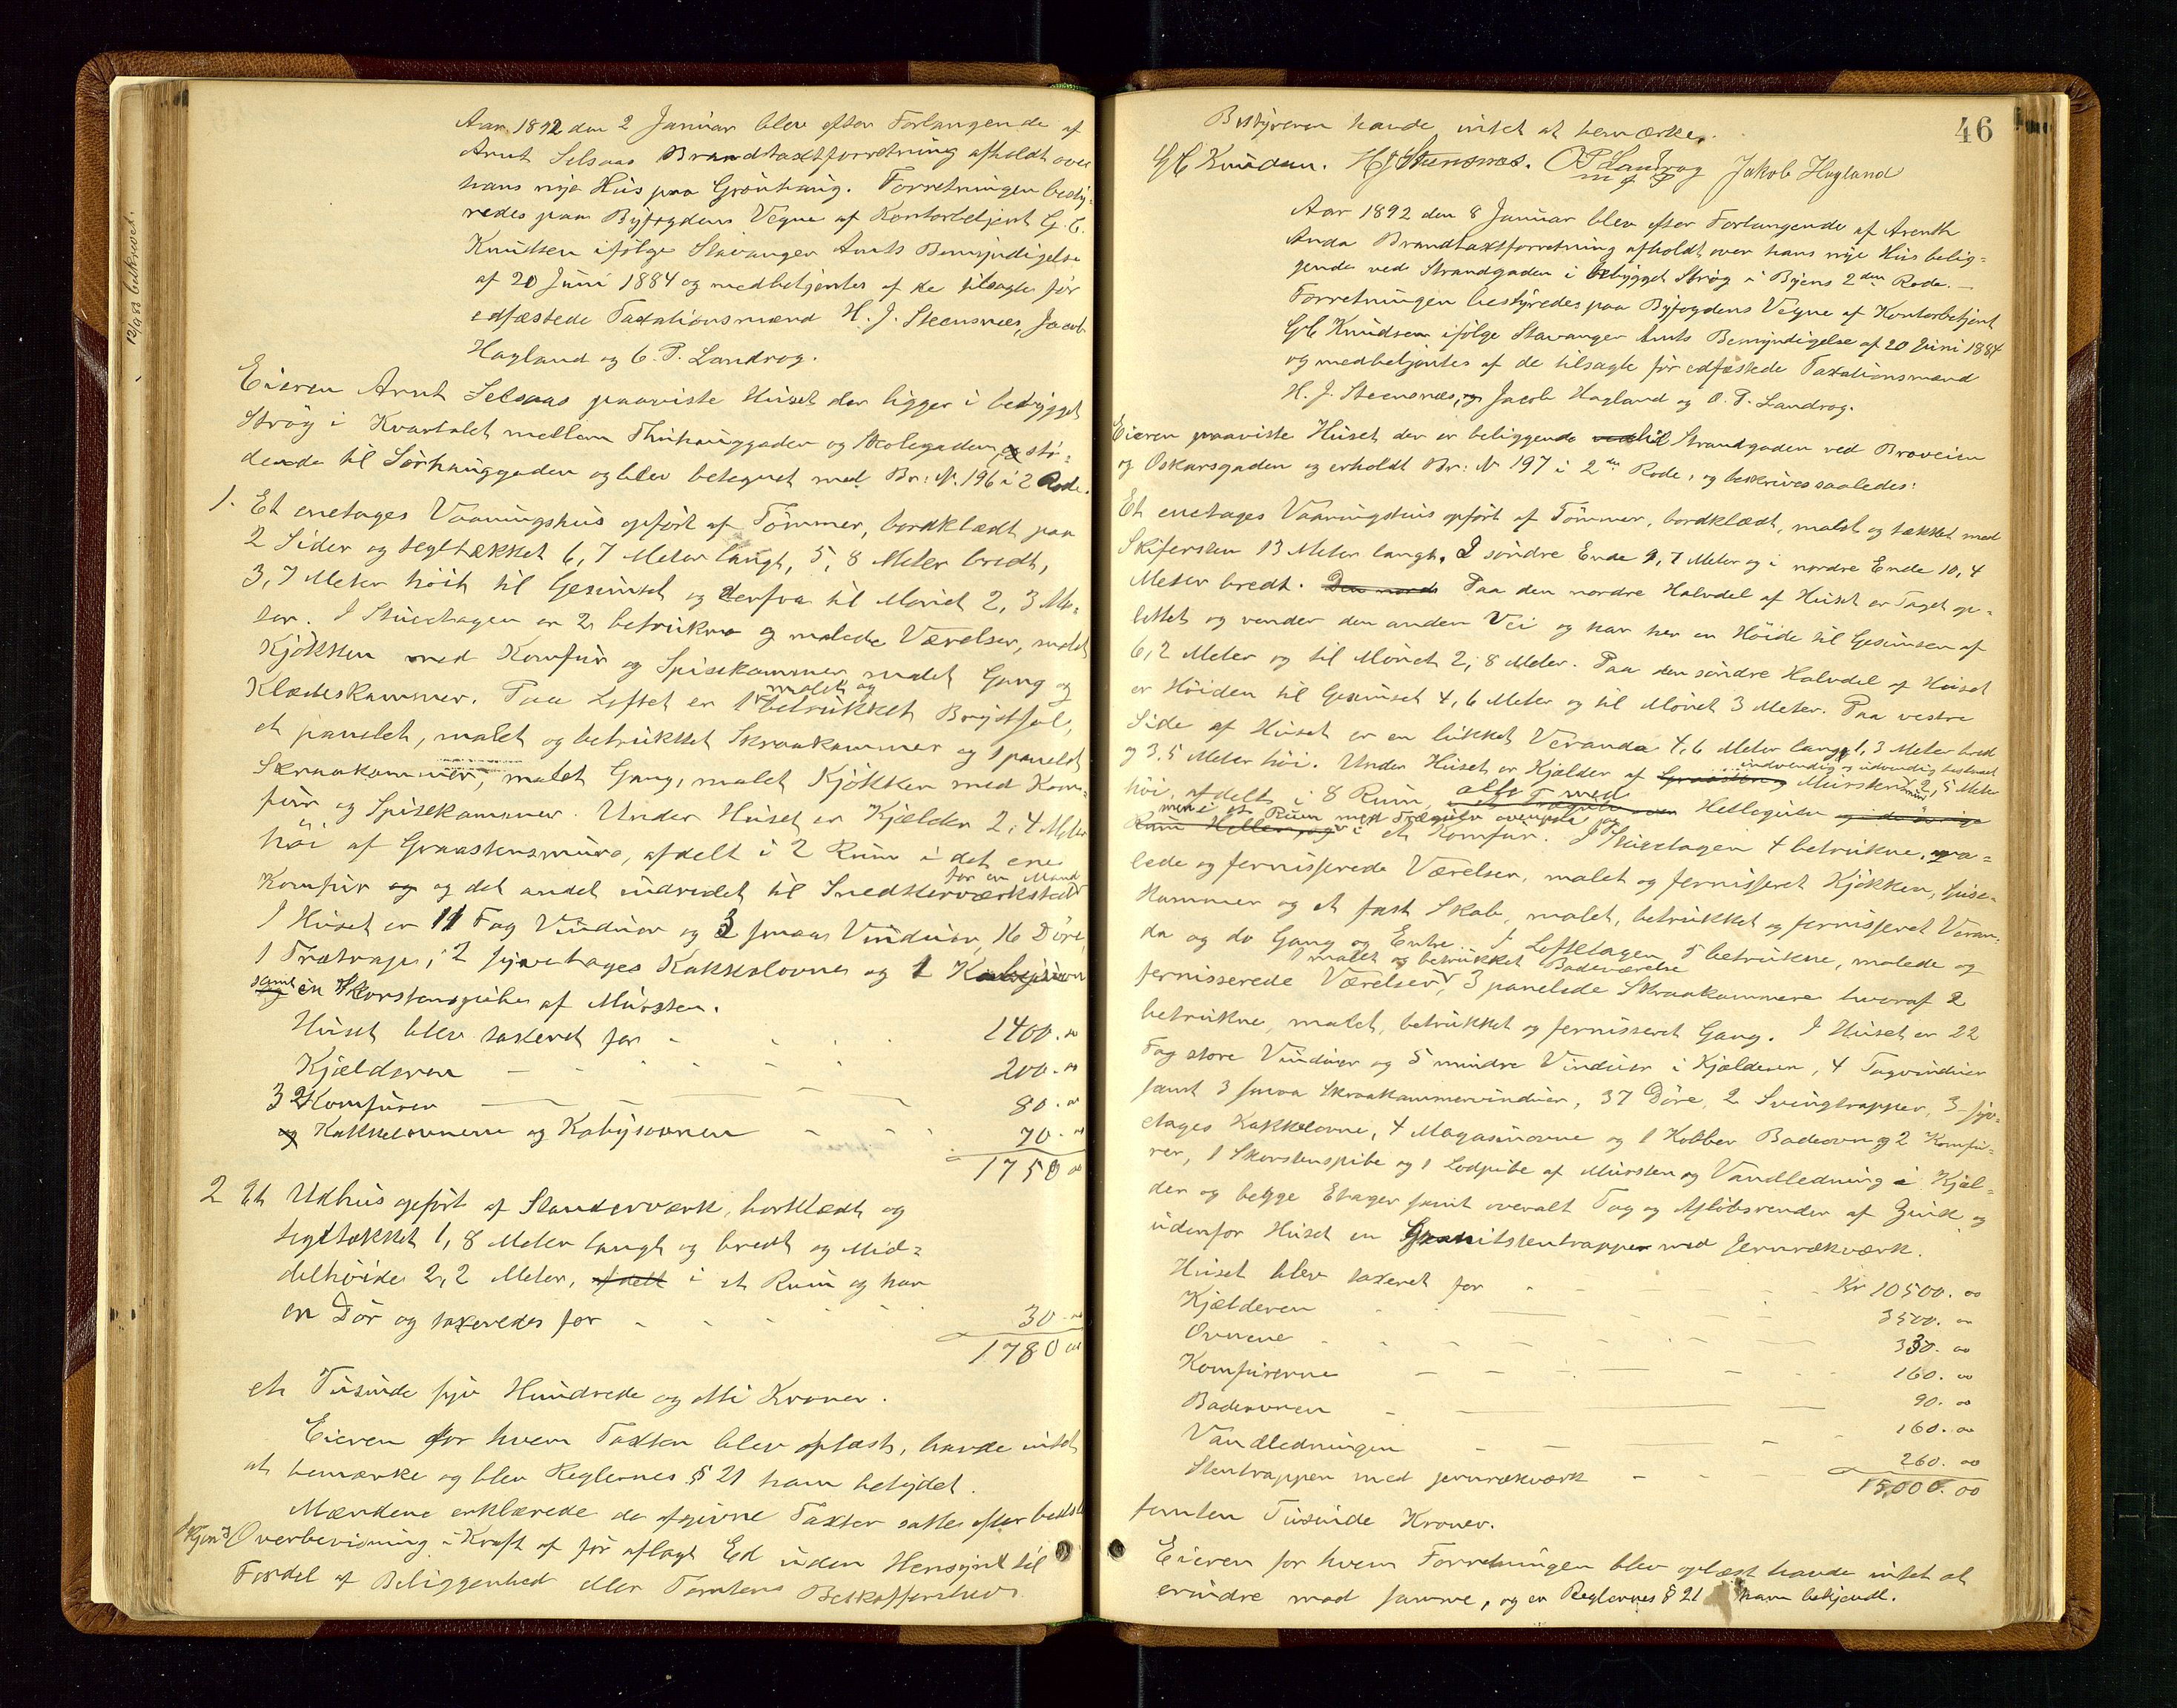 12/9 83 beskrevet.
Aar 1892 den 2 Januar blev efter Forlangende af
Arnt Selsaas Brandtaxtforretning afholdt over
hans nye Hus paa Grønhaug. Forretningen besty-
redes paa Byfogdens Vegne af Kontorbetjent G. C.
Knudsen ifølge Stavanger Amts Bemyndigelse
af 20 Juni 1884 og medbetjentes af de tilsagte før
edfæstede Taxationsmænd H. J. Steensnæs, Jacob
Hagland og O. P. Landrog.
Eieren Arnt Selsaas paaviste Huset der ligger i bebygget
Strøg i Kvartalet mellem Thuhauggaden og Skolegaden, stø-
dende til Sørhauggaden og blev betegnet med Br: N. 196 i 2 Rode.
1. Et enetages Vaaningshus opført af Tømmer, bordklædt paa
2 Sider og tegltækket 6,7 Meter langt, 5,8 Meter bredt,
3,7 Meter høit til Gesimset og derfra til Mønet 2,3 Me-
ter. I Stuetagen er 2 betrukne og malede Værelser, malet
Kjøkken med Komfur og Spisekammer, malet Gang og
Klædeskammer. Paa Loftet er 1 malet og betrukket Brystsal,
et panelet, malet og betrukket Skraakammer og 1 panelet
Skraakammer, malet Gang, malet Kjøkken med Kom-
fur og Spisekammer. Under Huset er Kjælder 2,4 Meter
høi af Graastensmure, afdelt i 2 Rum i det ene
Komfur og og det andet indredet til Snedkerværksted for en Mand
I Huset er 11 Fag Vinduer og 3 smaa Vinduer, 16 Døre,
1 Trætrappe, 2 fyretages Kakkelovne og 1 Kabysovn
samt en Skorstenspibe af Mursten.
Huset blev taxeret for - 1400.00
Kjælderen - 200.00
3 Komfurer - 80.00
og Kakkelovnene og Kabysovnen - 70.00
1750 00
2 Et Udhus opført af Standerværk, bordklædt og
tegltækket 1,8 Meter langt og bredt og Mid-
delhøide 2,2 Meter, afdelt i et Rum og har
en Dør og taxeredes for - 30.00
1780 00
et Tusinde syv Hundrede og otti Kroner.
Eieren for hvem Taxten blev oplæst, havde intet
at bemærke og blev Reglernes § 21 ham betydet.
Mændene erklærede de afgivne Taxter satte efter bedste
Skjøn & Overbevisning i Kraft af før aflagt Ed uden Hensyn til
Fordel af Beliggenhed eller Tomtens Beskaffenhed.
46
Bestyreren havde intet at bemærke.
G C Knudsen. H J Steensnæs. O P Landrog Jakob Hagland
m f P
Aar 1892 den 8 Januar blev efter Forlangende af Arenth
Anda Brandtaxtforretning afholdt over hans nye Hus belig-
gende ved Strandgaden i bebygget Strøg i Byens 2den Rode. -
Forretningen bestyredes paa Byfogdens Vegne af Kontorbetjent
G C Knudsen ifølge Stavanger Amts Bemyndigelse af 20 Juni 1884
og medbetjentes af de tilsagte før edfæstede Taxationsmænd
H. J. Steensnæs, og Jacob Hagland og O. P. Landrog.
Eieren paaviste Huset der er beliggende ved til Strandgaden ved Broveien
og Oskarsgaden og erholdt Br: N 197 i 2den Rode, og beskrives saaledes:
Et enetages Vaaningshus opført af Tømmer, bordklædt, malet og tækket med
Skifersten 13 Meter langt. I søndre Ende 9,7 Meter og i nordre Ende 10,4
Meter bredt. Den nord Paa den nordre Halvdel af Huset er Taget op-
løftet og vender den anden Vei og har her en Høide til Gesimsen af
6,2 Meter og til Mønet 2,8 Meter. Paa den søndre Halvdel af Huset
er Høiden til Gesimset 4,6 Meter og til Mønet 3 Meter. Paa vestre
Side af Huset er en lukket Veranda 4,6 Meter lang, 1,3 Meter bred
og 3,5 Meter høi. Under Huset er Kjælder af Graasten og indvendig og udvendig Murstens mur 2,5 Meter
høi, afdelt i 8 Rum, alle med Hellegulv
men i et Rum med Trægulv ovenpaa og i et Komfur. I Stuetagen 4 betrukne, ma-
lede og fernisserede Værelser, malet og fernisseret Kjøkken, Spise-
kammer og et fast Skab, malet, betrukket og fernisseret Veran-
da og do Gang og Entre. I Loftetagen 5 betrukne, malede og
fernisserede Værelser, 1 malet og betrukket Badeværelse 3 panelede Skraakammere hvoraf 2
betrukne, malet, betrukket og fernisseret Gang. I Huset er 22
Fag store Vinduer og 5 mindre Vinduer i Kjælderen, 4 Tagvinduer
samt 3 smaa Skraakammervinduer, 37 Døre, 2 Svingtrapper, 3 fyr-
etages Kakkelovne, 4 Magasinovne og 1 Kobber Badeovn og 2 Komfu-
rer, 1 Skorstenspibe og 1 Lodpibe af Mursten og Vandledning i Kjæl-
der og begge Etager samt overalt Tag og Afløbsrender af Zink og
udenfor Huset en Granitstentrappe med Jernrækværk.
Huset blev taxeret for - Kr 10500.00
Kjælderen - 3500.00
Ovnene - 330.00
Komfurerne - 160.00
Badeovnen - 90.00
Vandledningen - 160.00
Stentrappen med jernrækværk - 260.00
15,000.00
femten Tusinde Kroner.
Eieren for hvem Forretningen blev oplæst havde intet at
erindre mod samme, og er Reglernes § 21 ham bekjendt.